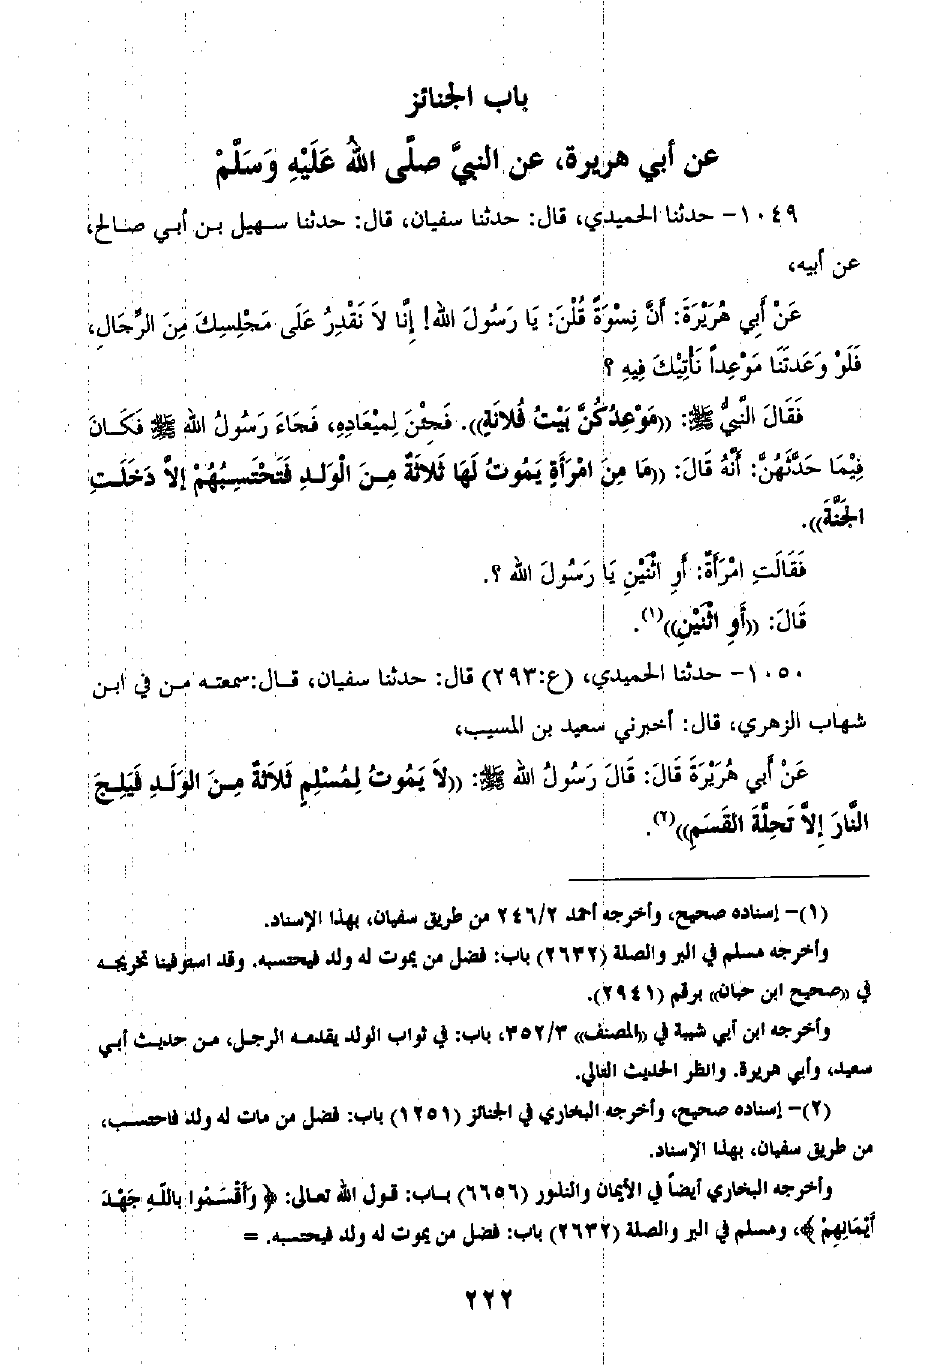 باب الجنائز
عن أبي هريرة، عن النبيَّ صلَّى اللهُ عَلَيْهِ وَسَلَّمْ
١٠٤٩- حدثنا الحميدي، قال: حدثنا سفيان، قال: حدثنا سهيل بن أبي صالح،
عن أبيه،
عَنْ أَبِي هُرَيْرَةَ: أَنَّ نِسْوَةً قُلْنَ: يَا رَسُولَ الله! إِنَّا لاَ نَقْدِرُ عَلَى مَجْلِسِكَ مِنَ الرِّجَالِ،
فَلَوْ وَعَدتَنَا مَوْعِداً نَأتِيْكَ فِيهِ ؟
فَقَالَ النَّبِيُّ ﷺ: ((مَوْعِدُكُنَّ بَيْتُ فُلانَةٍ)). فَجِئْنَ لِمِيْعَادِهِ، فَجَاءَ رَسُولُ الله ﷺ فَكَانَ
فِيْمَا حَدَّثَهُنَّ: أَنَّهُ قَالَ: ((مَا مِنَ امْرَأَةٍ يَمُوتُ لَهَا ثَلاثَةٌ مِنَ الْوَلَدِ فَتَحْتَسِبُهُمْ إلاَّ دَخَلَتِ
الجَنَّةَ)).
فَقَالَتِ امْرَأَةٌ: أَوِ اثْنَيْنِ يَا رَسُولَ الله ؟.
قَالَ: ((أَوِ اثْنَيْنِ))(١).
١٠٥٠- حدثنا الحميدي، (ع:٢٩٣) قال: حدثنا سفيان، قال:سمعته من في ابن
شهاب الزهري، قال: أخبرني سعيد بن المسيب،
عَنْ أَبِي هُرَيْرَةَ قَالَ: قَالَ رَسُولُ الله ﷺ: ((لاَ يَمُوتُ لِمُسْلِمٍ ثَلاثَةٌ مِنَ الوَلَدِ فَيَلِجَ
النَّارَ إِلاَّ تَحِلَّةَ القَسَمِ))(٢).
(١)- إسناده صحيح، وأخرجه أحمد ٢٤٦/٢ من طريق سفيان، بهذا الإسناد.
وأخرجه مسلم في البر والصلة (٢٦٣٢) باب: فضل من يموت له ولد فيحتسبه. وقد استوفينا تخريجه
في ((صحيح ابن حبان)) برقم (٢٩٤١).
وأخرجه ابن أبي شيبة في ((المصنف)) ٣٥٢/٣، باب: في ثواب الولد يقدمه الرجل، من حديث أبي
سعيد، وأبي هريرة. وانظر الحديث التالي.
(٢)- إسناده صحيح، وأخرجه البخاري في الجنائز (١٢٥١) باب: فضل من مات له ولد فاحتسب،
من طريق سفيان، بهذا الإسناد.
وأخرجه البخاري أيضاً في الأيمان والنذور (٦٦٥٦) باب: قول الله تعالى: ﴿ وَأَقْسَمُوا بِاللَّهِ جَهْدَ
أَيْمَانِهِمْ ﴾، ومسلم في البر والصلة (٢٦٣٢) باب: فضل من يموت له ولد فيحتسبه. =
٢٢٢